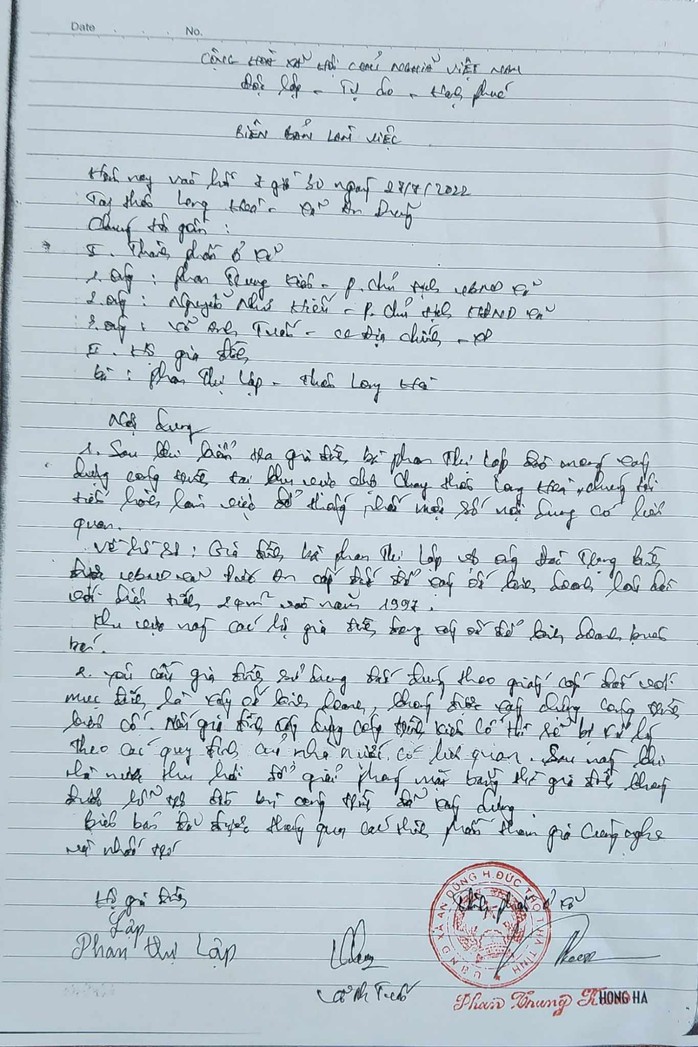 Date No.
CỘNG HOÀ XÃ HỘI CHỦ NGHĨA VIỆT NAM
Độc lập - Tự do - Hạnh phúc
BIÊN BẢN LÀM VIỆC
Hôm nay vào hồi giờ 30 ngày 27/7/2022
Tại thôn Long - xã An Dũng
Chúng tôi gồm:
I. Thành phần ở xã
1. ông: Phan Trung - P. chủ tịch UBND xã
2. ông: Nguyễn Như - P. chủ tịch HĐND xã
3. ông: Võ Anh Tuấn - cc địa chính - XD
II. Hộ gia đình
bà: Phan Thị Lập - Thôn Long
Nội dung
1. Sau khi kiểm tra gia đình bà Phan Thị Lập xây
dựng công trình tại khu vực chợ Chay thôn Long chúng tôi
tiến hành làm việc để thống nhất một số nội dung có liên
quan.
Về hồ sơ: Gia đình bà Phan Thị Lập và ông
được UBND xã Đức An cấp đất để xây ốt kinh doanh
với diện tích 24m² vào năm 1997.
Khu vực này các hộ gia đình xây ốt để kinh doanh buôn
bán.
2. yêu cầu gia đình sử dụng đất đúng theo giấy cấp đất với
mục đích là xây ốt kinh doanh, không được xây dựng công trình
kiên cố. Nếu gia đình xây dựng công trình kiên cố thì sẽ bị xử lý
theo các quy định của nhà nước có liên quan. Sau này khi
nhà nước thu hồi để giải phóng mặt bằng thì gia đình không
được hỗ trợ công trình đã xây dựng
Biên bản đã được thông qua các thành phần tham gia cùng nghe
và nhất trí
Hộ gia đình
Thành phần ở xã
Lập
Phan Thị Lập
Võ Anh Tuấn
U.B.N.D XÃ AN DŨNG H ĐỨC THỌ T HÀ TĨNH
Phan Trung
HONG HA